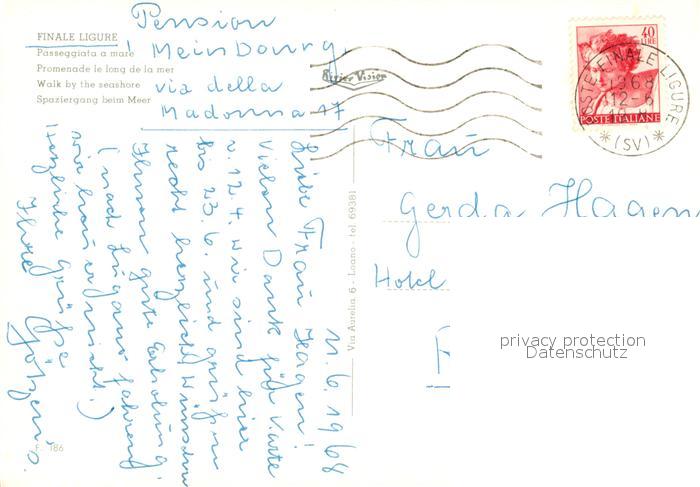 Pension
Meindourg,
via della
Madonna 17
FINALE LIGURE
Passeggiata a mare
Promenade le long de la mer
Walk by the seashore
Spaziergang beim Meer
Rivier Visior
40
LIRE
POSTE ITALIANE
POSTE FINALE LIGURE
1968
12-6
(SV)
11.6.1968
Liebe Frau Hagen!
Vielen Dank für Karte
v. 12.4. wir sind hier
bis 23.6. und grüßen
recht herzlich, wünschen
Ihnen gute Erholung.
(nach Lugano fahren
wir heuer nicht.)
Herzliche Grüße
Ihre
Via Aurelia 6 - Loano - tel 69381
Frau
Gerda Hagen
Hotel
F. 186
privacy protection
Datenschutz